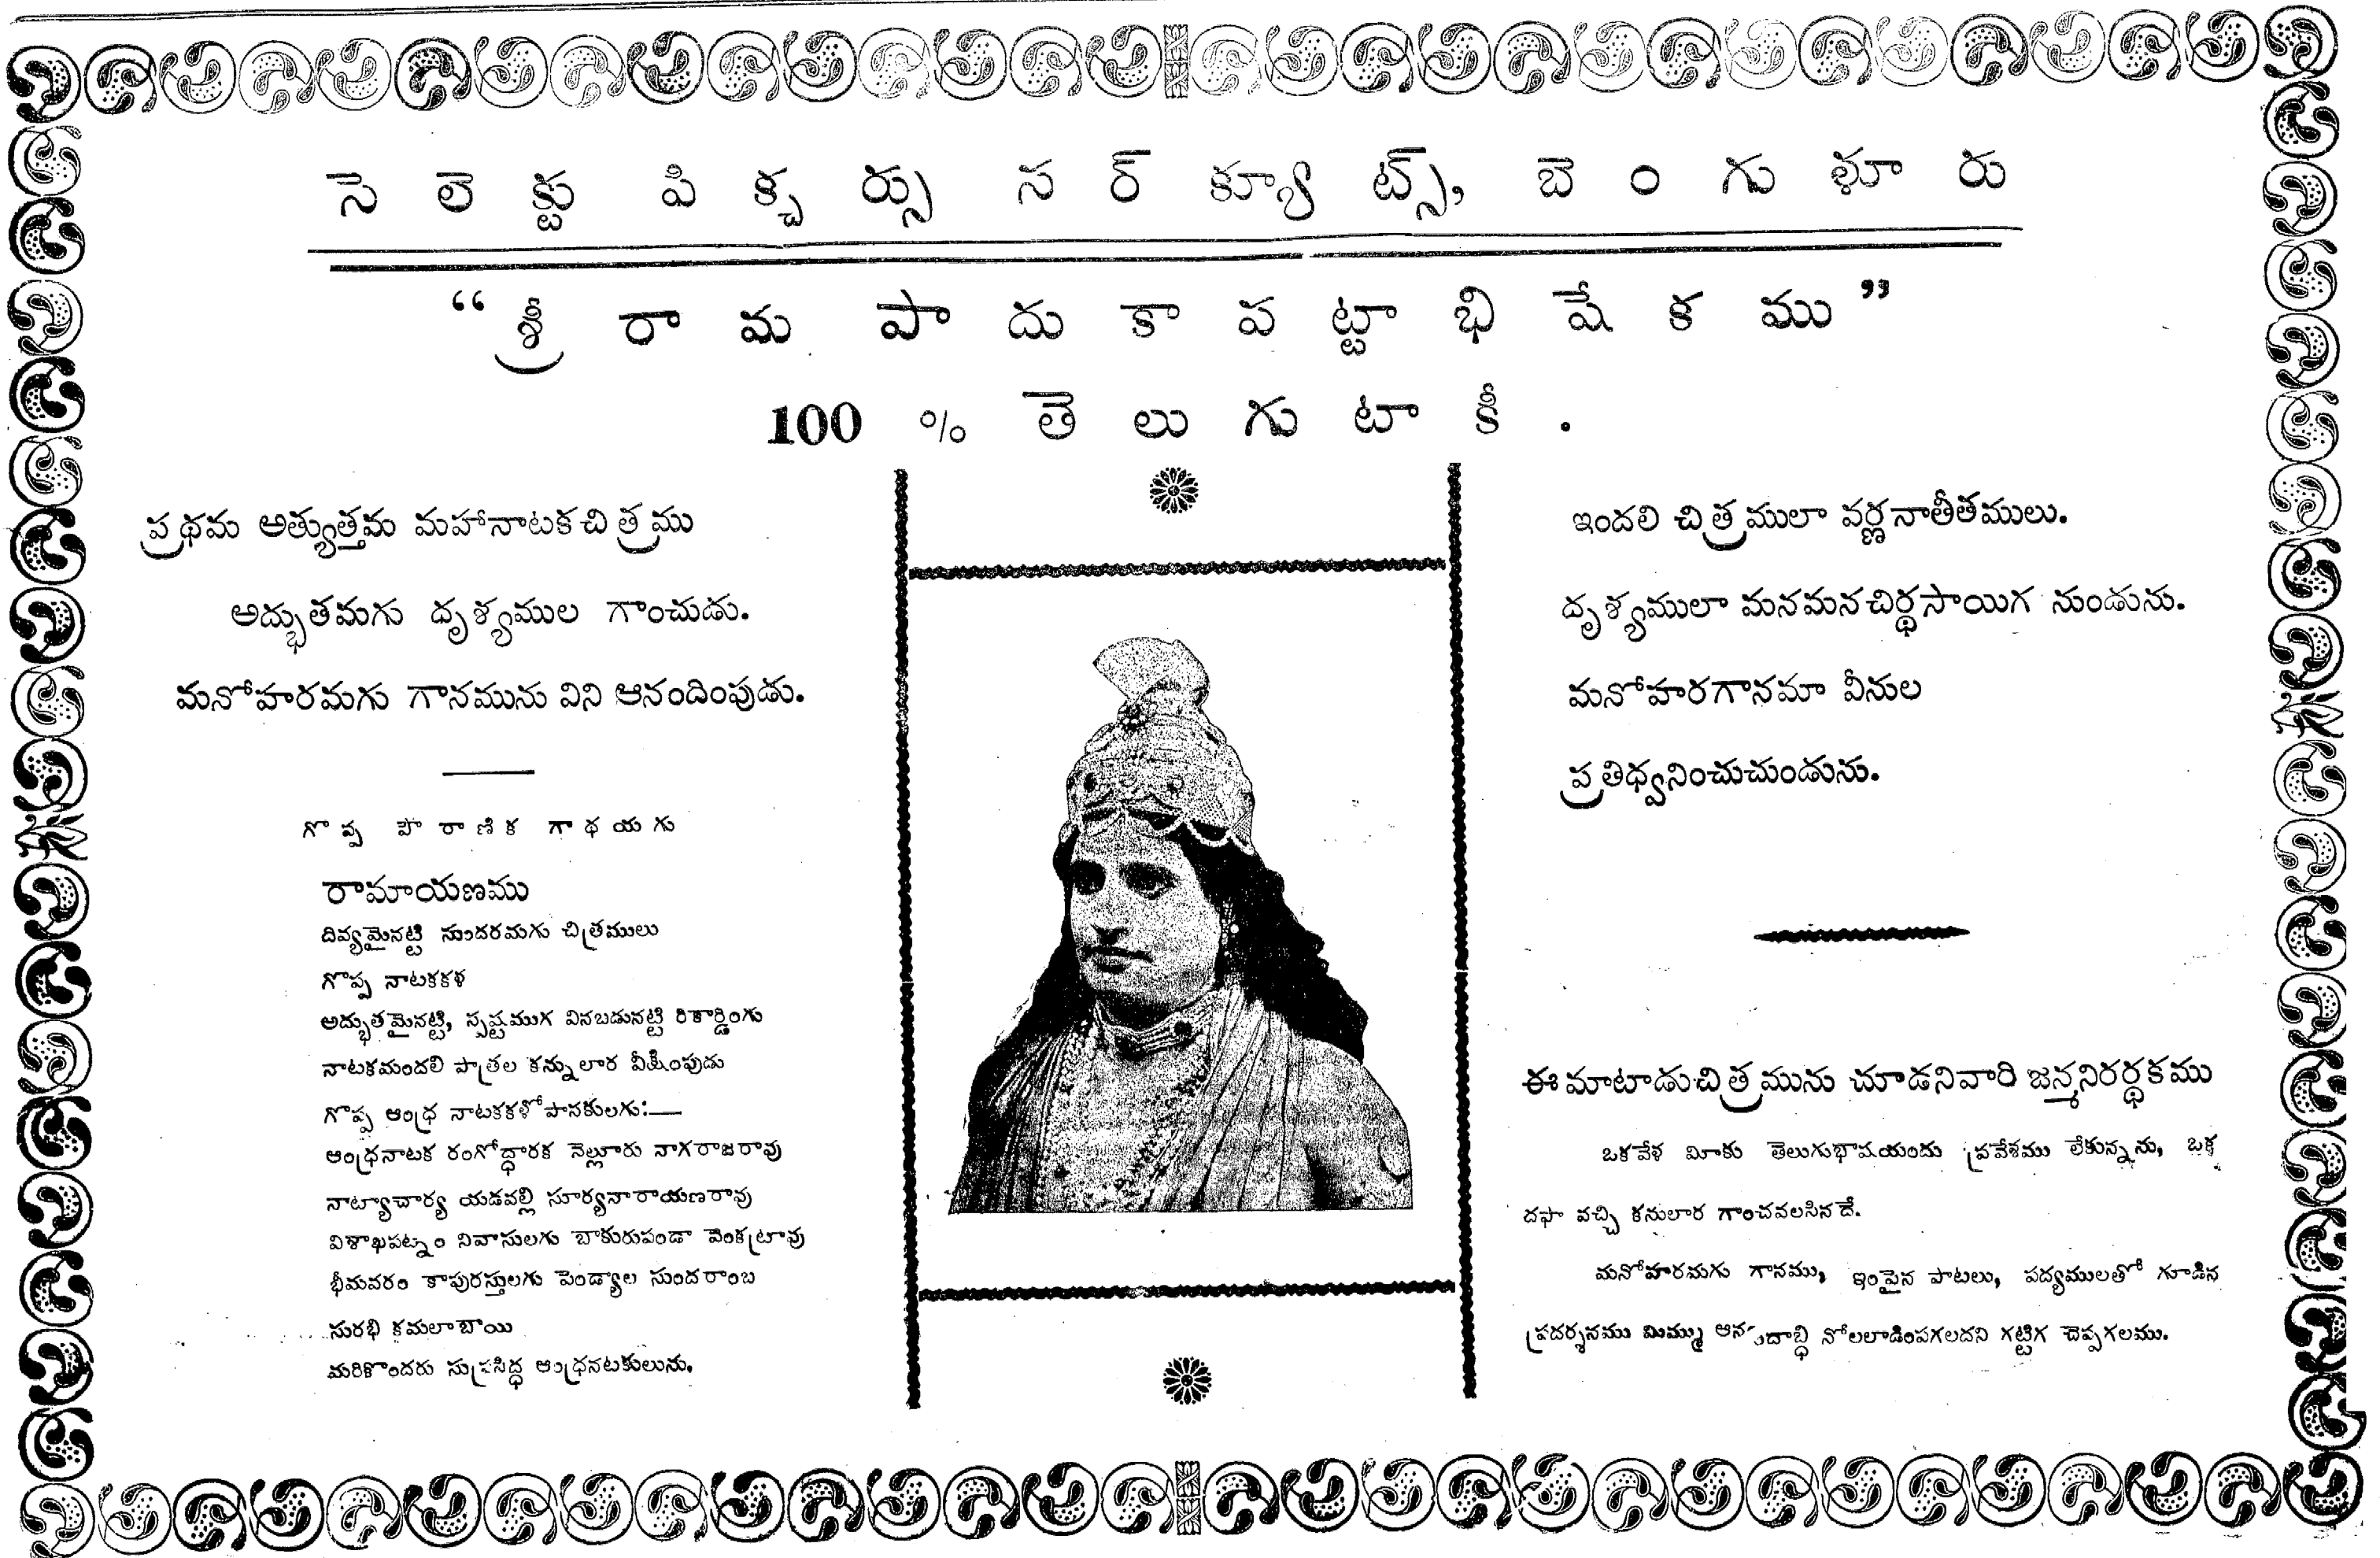 సెలెక్టు పిక్చర్సు సర్‌క్యూట్స్, బెంగుళూరు
“శ్రీరామపాదుకాపట్టాభిషేకము”
100 % తెలుగు టాకీ.
ప్రథమ అత్యుత్తమ మహానాటకచిత్రము
అద్భుతమగు ధృశ్యముల గాంచుడు.
మనోహరమగు గానమును విని ఆనందింపుడు.
గొప్ప పౌరాణిక గాథయగు
రామాయణము
దివ్యమైనట్టి సుందరమగు చిత్రములు
గొప్ప నాటకకళ
అద్భుతమైనట్టి, స్పష్టముగ వినబడునట్టి రికార్డింగు
నాటకమందలి పాత్రల కన్నులార వీక్షింపుడు
గొప్ప ఆంధ్ర నాటకకళోపాసకులగు:—
ఆంధ్రనాటక రంగోద్ధారక నెల్లూరు నాగరాజరావు
నాట్యాచార్య యడవల్లి సూర్యనారాయణరావు
విశాఖపట్నం నివాసులగు బాకురుపండా వెంకట్రావు
భీమవరం కాపురస్తులగు పెండ్యాల సుందరాంబ
సురభి కమలాబాయి
మరికొందరు సుప్రసిద్ధ ఆంధ్రనటకులును.
ఇందలి చిత్రములా వర్ణనాతీతములు.
దృశ్యములా మనమనచిర్థసాయిగ నుండును.
మనోహరగానమా వీనుల
ప్రతిధ్వనించుచుండును.
ఈ మాటాడుచిత్రమును చూడనివారి జన్మనిరర్థకము
ఒకవేళ మీకు తెలుగుభాషయందు ప్రవేశము లేకున్నను, ఒక్క
దఫా వచ్చి కనులార గాంచవలసినదే.
మనోహరమగు గానము, ఇంపైన పాటలు, పద్యములతో గూడిన
ప్రదర్శనము మిమ్ము ఆనందాబ్ధి నోలలాడింపగలదని గట్టిగ చెప్పగలము.